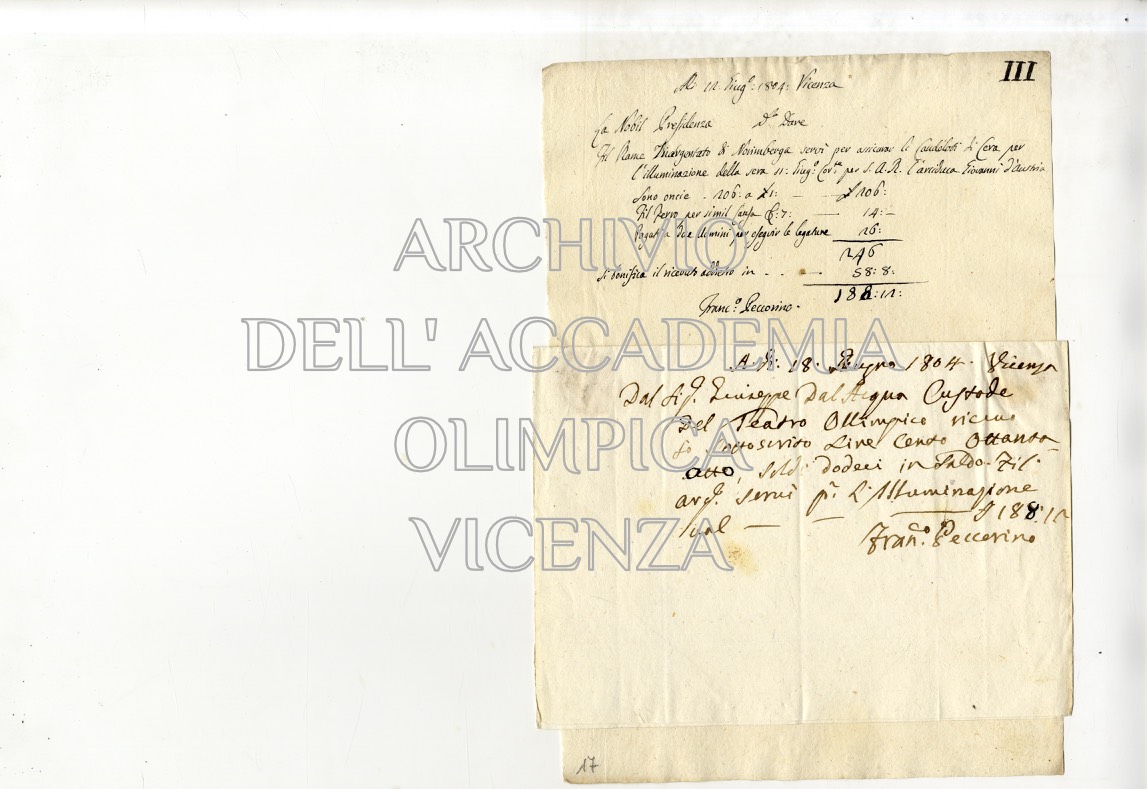 III
Al 12 Giugº: 1804: Vicenza
La Nobil Presidenza Dº Dare
Fil Rame Inargentato di Norimberga servì per assicurar li Candeloti di Cera per
l'illuminazione della sera 11: Giugº: Corte per S. A. R. l'arciduca Giovanni d'Austria
Sono oncie . 206: a £1: — £ 206:
Fil Ferro per simil Causa 7: — 14: —
Pagati a due Uomini per eseguir le legature 26:
246
Si bonifica il ricevuto addietro in . . — 58: 8:
188:12:
Francº: Peccorino.
A. di: 18: Giugno 1804. Vicenza
Dal Sig. Giuseppe Dal Acqua Custode
Del Teatro Ollimpico ricevo
Io sottoscrito Lire Cento Ottanta
otto, soldi dodeci in Saldo. Fil.
arg. servì p. L'Illuminazione
val — — £ 188:12
Franº: Peccorino
17
ARCHIVIO
DELL'ACCADEMIA
OLIMPICA
VICENZA